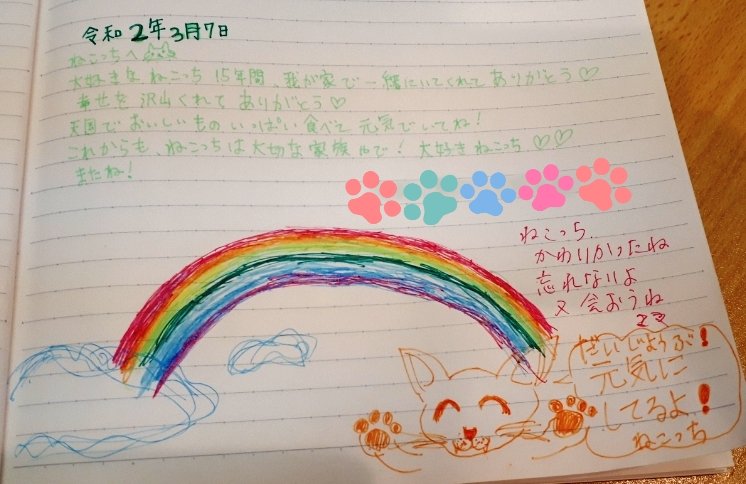 令和2年3月7日
ねこっちへ
大好きな ねこっち 15年間 我が家で一緒にいてくれて ありがとう♡
幸せを 沢山くれて ありがとう♡
天国で おいしいもの いっぱい 食べて 元気で いてね!
これからも、ねこっちは 大切な 家族やで! 大好き ねこっち ♡♡
またね!
ねこっち、
かわいかったね
忘れないよ
又 会おうね
だいじょうぶ!
元気に
してるよ!
ねこっち